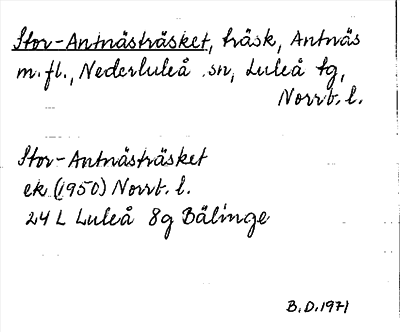 Stor-Antnästräsket, träsk, Antnäs
m.fl., Nederluleå sn, Luleå tg,
Norrb. l.
Stor-Antnästräsket
ek (1950) Norrb. l.
24 L Luleå 8g Bälinge
B.D. 1971